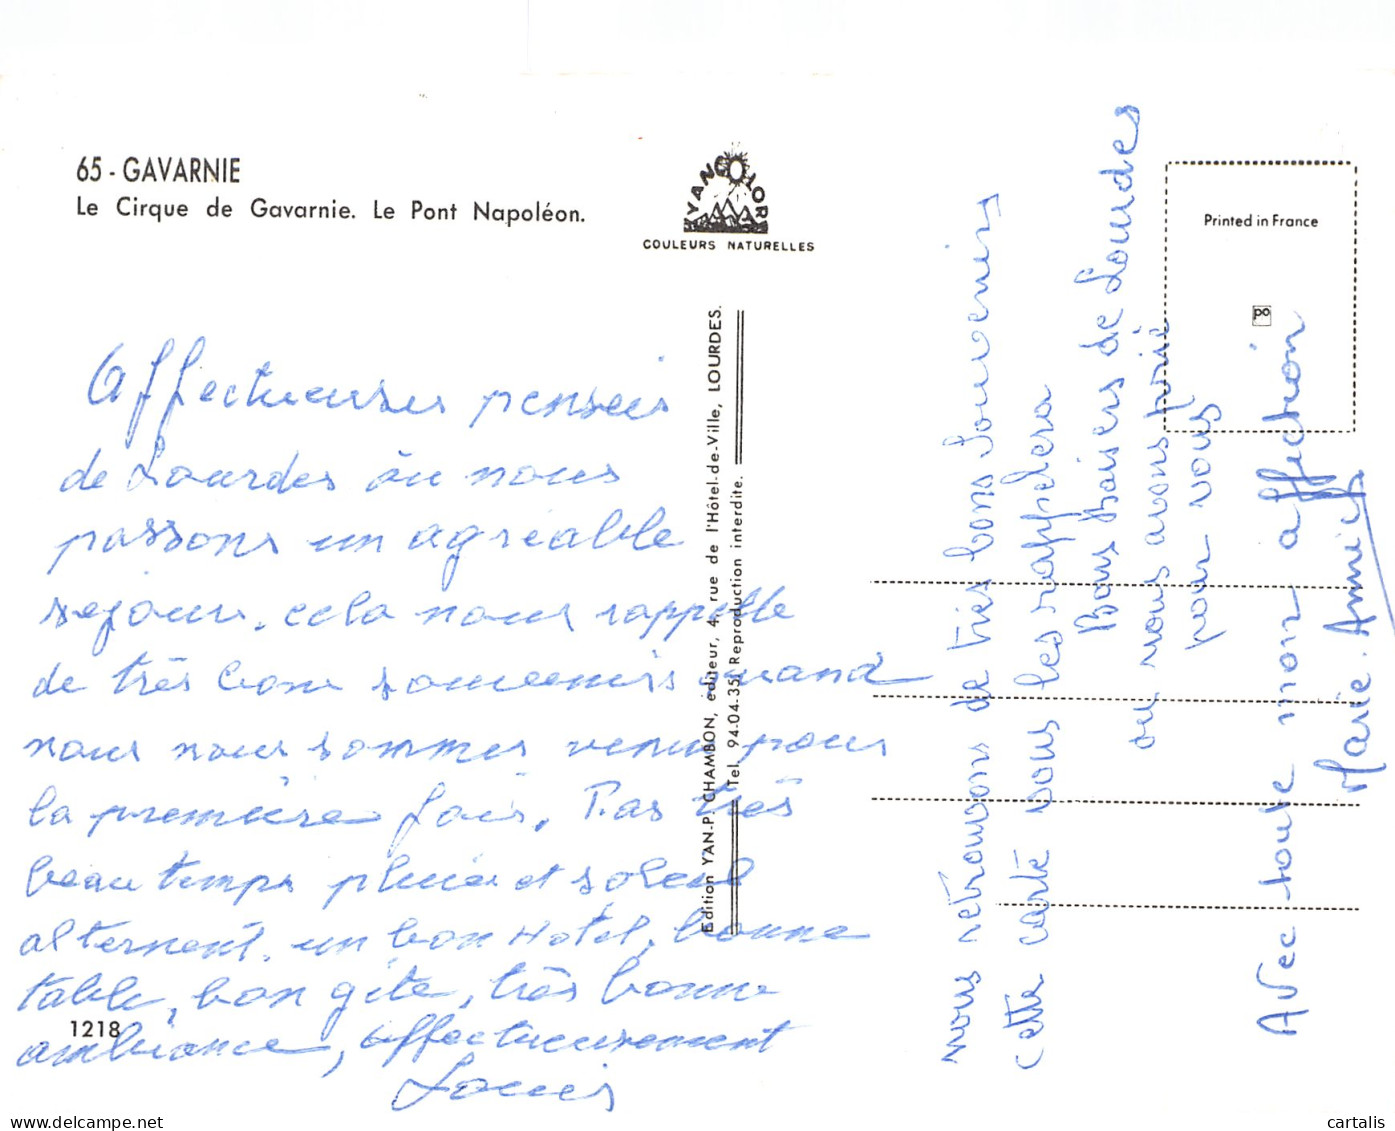 65 - GAVARNIE
Le Cirque de Gavarnie. Le Pont Napoléon.
YANCOLOR
COULEURS NATURELLES
Printed in France
po
Edition YAN-P. CHAMBON, éditeur, 4, rue de l'Hôtel-de-Ville, LOURDES.
Tel. 94-04-35. Reproduction interdite.
Affectueuses pensées
de Lourdes ou nous
passons un agréable
sejour. cela nous rappelle
de très bons souvenirs quand
nous nous sommes venu pour
la première fois. Pas très
beau temps pluie et soleil
alternent. un bon Hotel, bonne
table, bon gîte, très bonne
ambiance, affectueusement
Louis
1218
nous retrouvons de très bons Souvenirs
cette carte vous les rappelera
Bons baisers de Lourdes
ou nous avons prié
pour vous
Avec toute mon affection
Marie. Annick
cartalis
www.delcampe.net